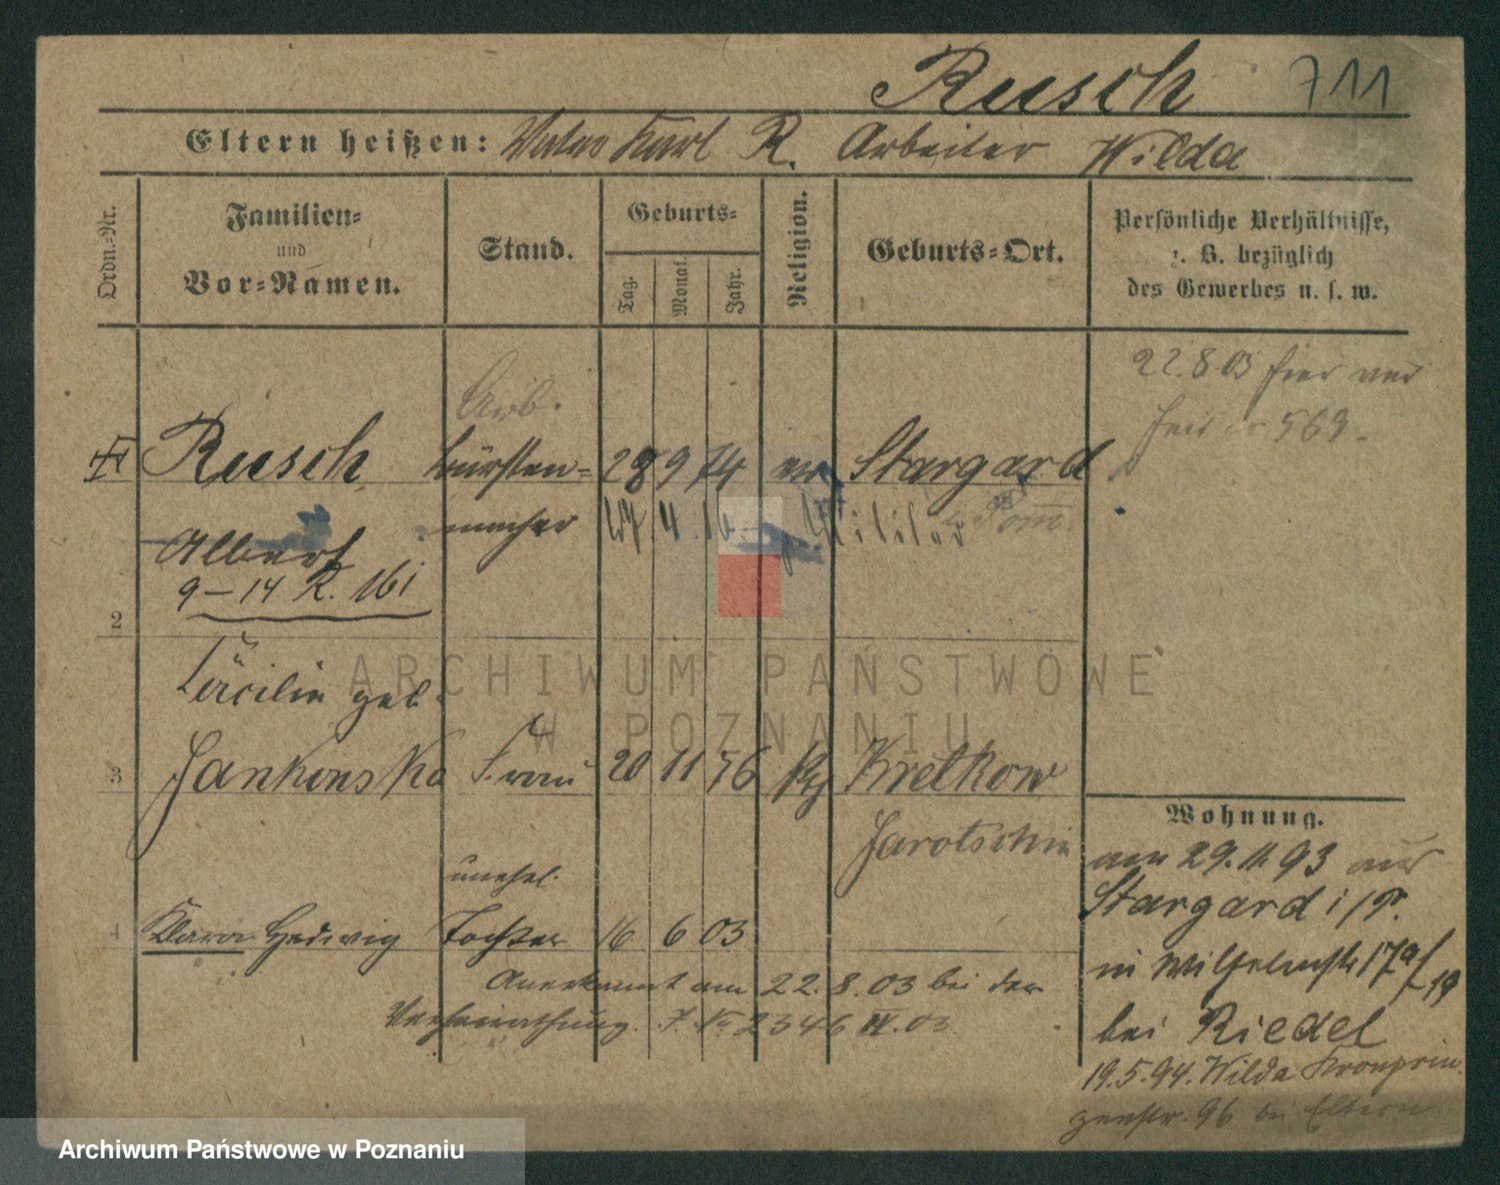 Rusch 711
Eltern heißen: Vater Karl R. Arbeiter Wilda
Ordn.-Nr.
Familien-
und
Vor-Namen.
Stand.
Geburts-
Tag.
Monat.
Jahr.
Religion.
Geburts-Ort.
Persönliche Verhältnisse,
z. B. bezüglich
des Gewerbes u. s. w.
22.8.03 hier
569
Arb.
Rusch Bürsten- 28 9 74 ev Stargard
Albert macher 27. 4. 16 Militär Pom.
9-14 R. 161
2
Cäcilie geb.
3 Jankowska Frau 20 11 76 Kretkow
Jarotschin
unehel.
4 Klara Hedwig Tochter 16 6 03
Anerkannt am 22.8.03 bei der
Verheirathung. J. No 2346 03
Wohnung.
am 29.11.93 aus
Stargard i/P.
in Wilhelmstr 17a/19
bei Riedel
19.5.94. Wilda Kronprin
zenstr. 96 bei Eltern
ARCHIWUM PAŃSTWOWE
W POZNANIU
Archiwum Państwowe w Poznaniu